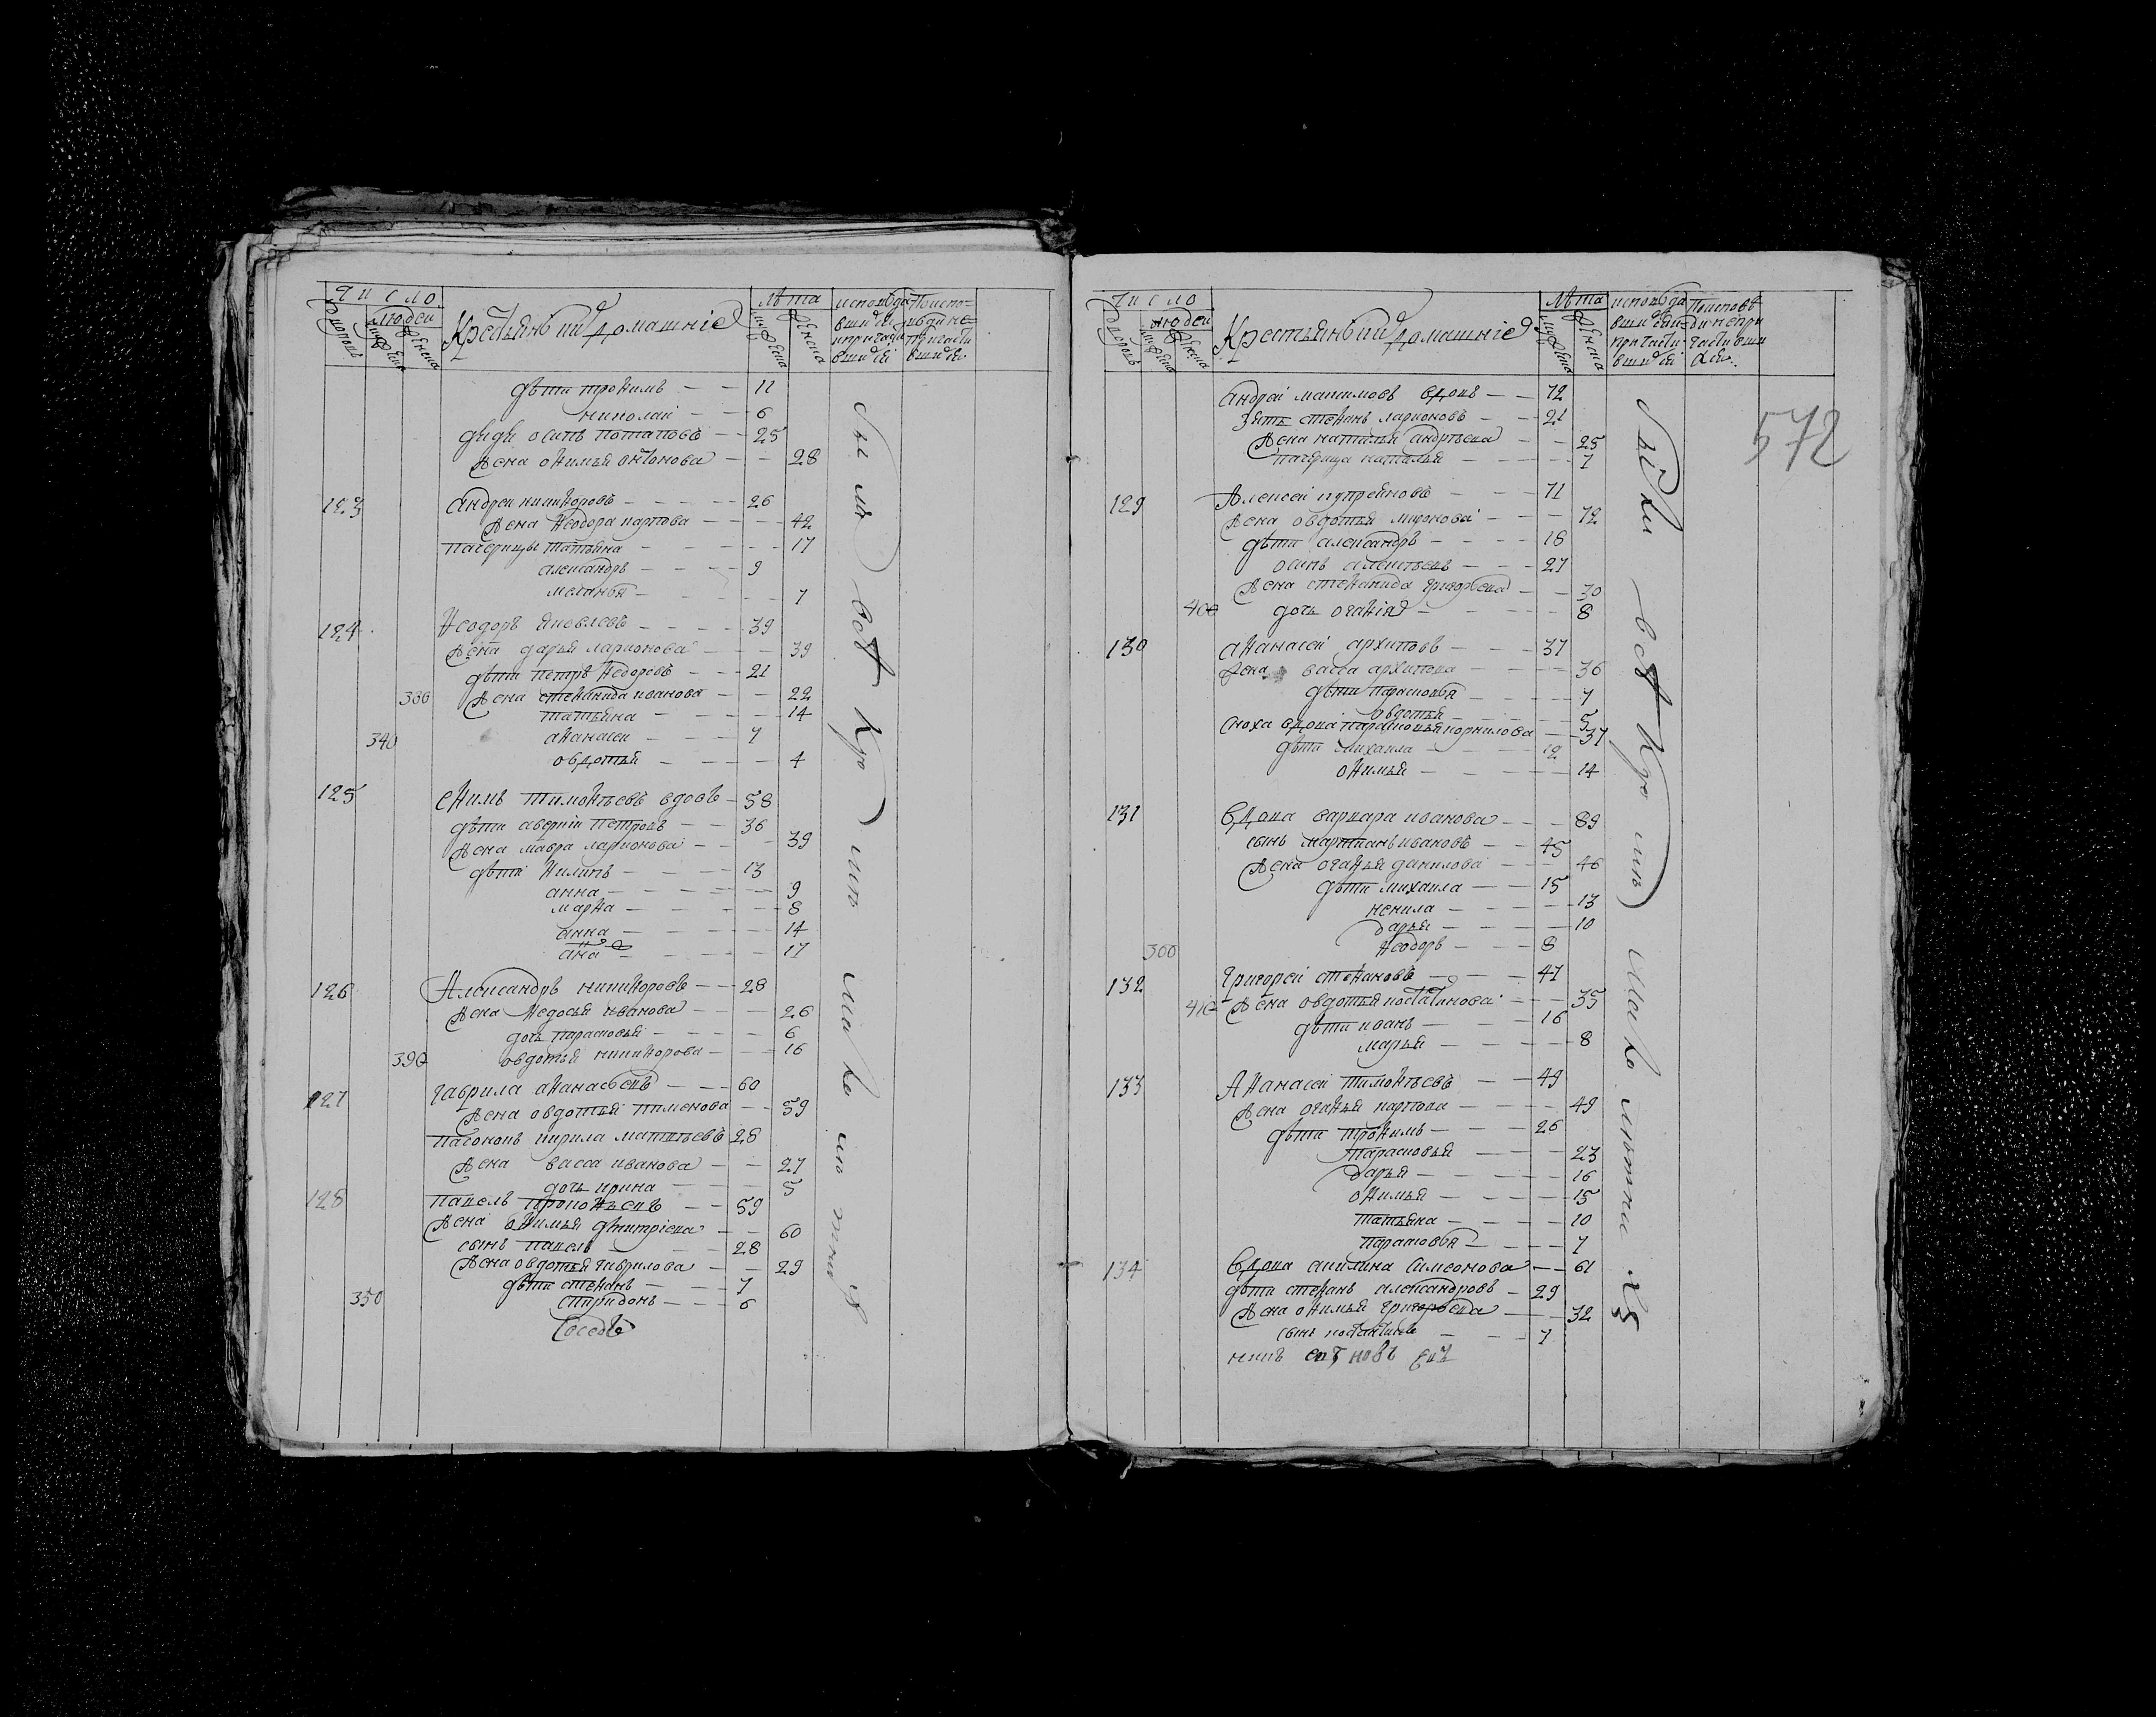 Число
людеи
дворовъ
мужеска
женска
Крестьянъ ии домашніе
Лѣта
мужеска
женска
исповѣда
вшихся
и причасти
вшихся
По испо=
вѣди не=
причасти
вшихся
дѣти трофимъ 11
николаи 6
дядя осипъ потаповъ 25
жена офимья онтонова 28
123 андреи никифоровъ 26
жена Феодора карпова 42
пачерицы татьяна 17
александръ 9
меланья 7
124 Феодоръ яковлевъ 39
жена дарья ларионова 39
дѣти петръ Федоровъ 21
380 жена стефанида иванова 22
татьяна 14
340 афанасеи 7
овдотья 4
125 ефимъ тимофѣевъ вдовъ 58
дѣти аверкіи петровъ 36
жена мавра ларионова 39
дѣти Филипъ 13
анна 9
марфа 8
анна 14
анна 17
126 Александръ никифоровъ 28
жена Федосья иванова 26
дочь парасковья 6
390 овдотья никифорова 16
127 гаврила афанасьевъ 60
жена овдотья пименова 59
пасонокъ кирила матвѣевъ 28
жена васса иванова 27
дочь ирина 5
128 павелъ прокофьевъ 59
жена офимья дмитріева 60
сынъ павелъ 28
жена овдотья гаврилова 29
дѣти стефанъ 7
350 спиридонъ 6
Число
людеи
дворовъ
мужеска
женска
Крестьянъ ии домашніе
Лѣта
мужеска
женска
исповѣда
вшихся
причасти
вшихся
По исповѣ
ди не при
частивши
хся
572
андреи макимовъ вдовъ 72
зять стефанъ ларионовъ 21
жена наталья андрѣева 25
пачерица наталья 7
129 Алексеи купрѣяновъ 71
жена овдотья миронова 72
дѣти александръ 18
осипъ алексѣевъ 27
жена стефанида григорьева 30
400 дочь огафія 8
130 афанасеи архиповъ 37
жена васса архипова 36
дѣти парасковья 7
овдотья 5
сноха вдова парасковья корнилова 37
дѣти михаила 12
офимья 14
131 Вдова варвара иванова 89
сынъ мартианъ ивановъ 45
жена огафья данилова 46
дѣти михаила 15
ненила 13
дарья 10
360 Феодоръ 8
132 Григореи стефановъ 47
410 жена овдотья костатинова 35
дѣти иванъ 16
марья 8
133 Афанасеи тимофѣевъ 49
жена огафья карпова 49
дѣти трофимъ 26
парасковья 23
дарья 16
офимья 15
татьяна 10
парасковья 7
134 Вдова акилина симеонова 61
дѣти стефанъ александровъ 29
жена офимья григорьева 32
сынъ костантинъ 7